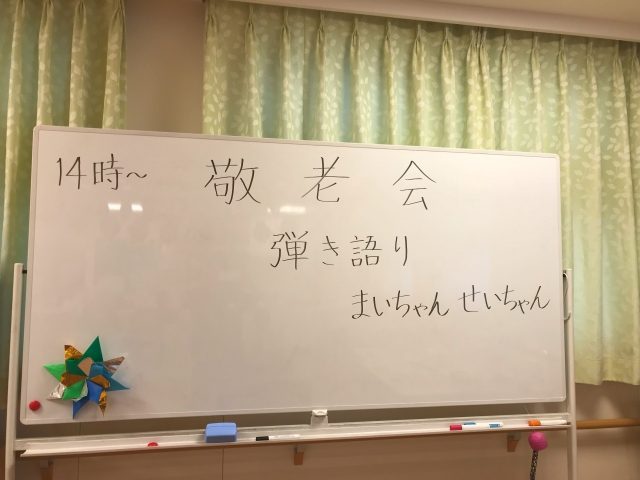 14時～ 敬老会
弾き語り
まいちゃん せいちゃん